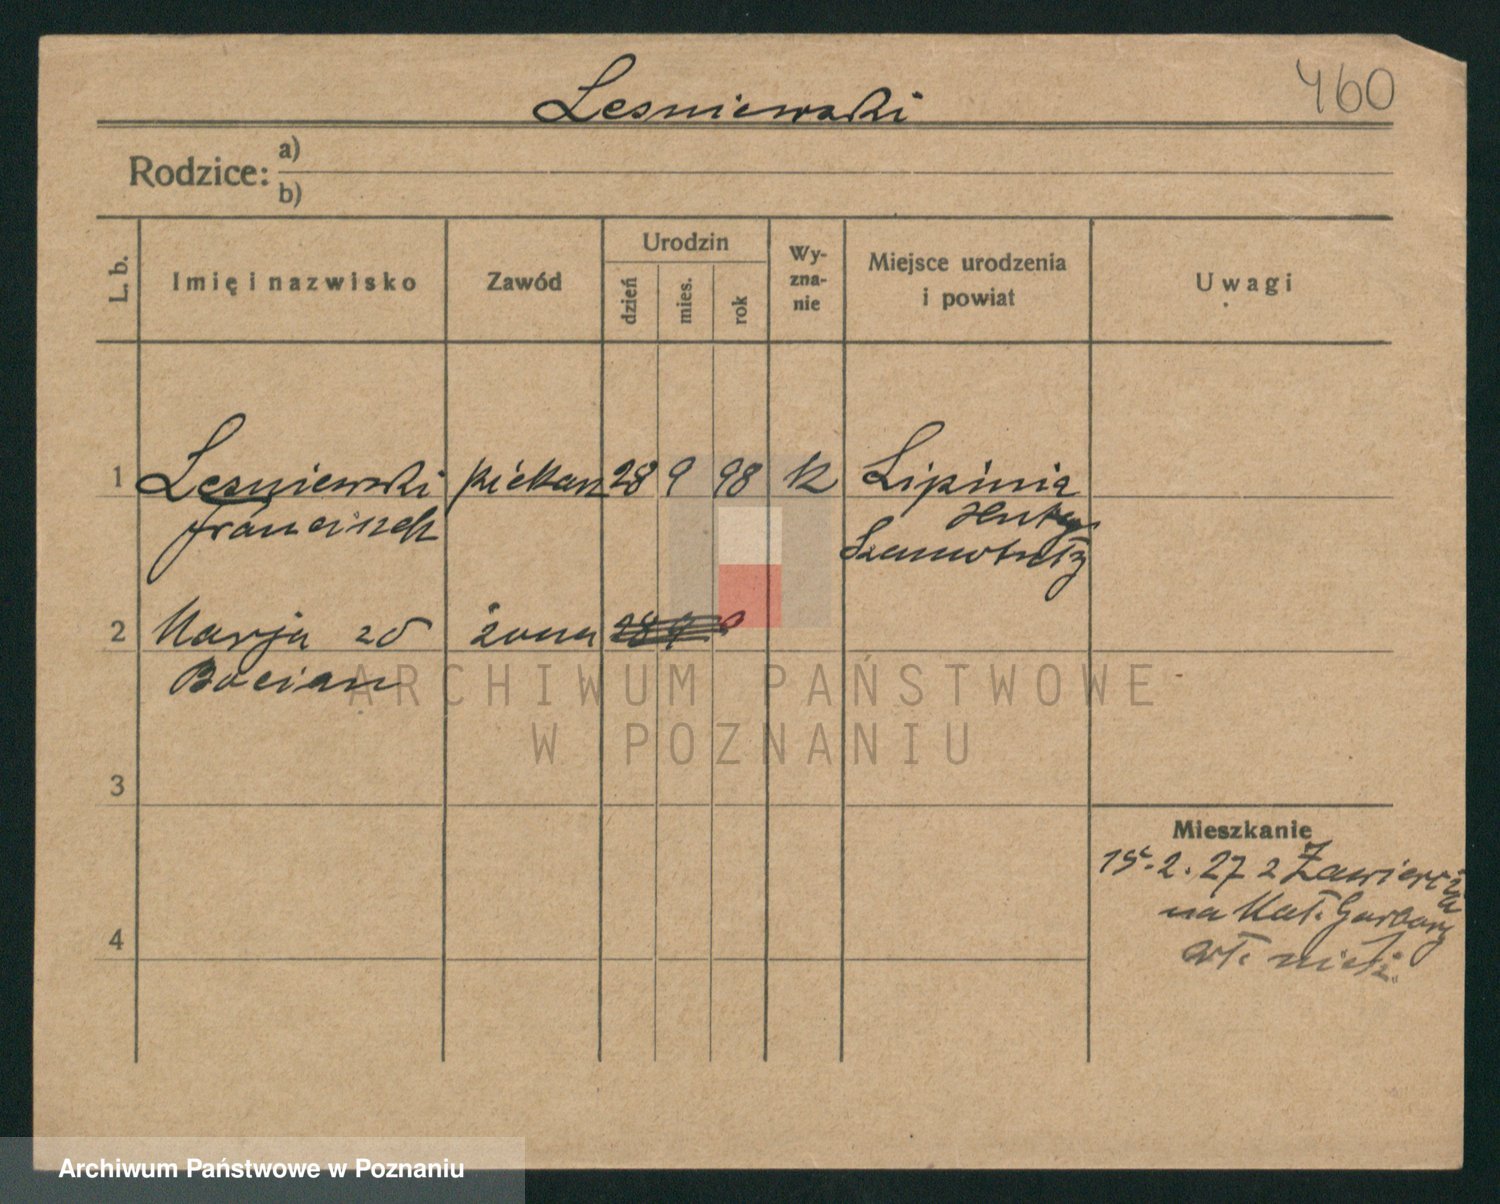 Lesniewski
460
Rodzice: a)
b)
L. b.
Imię i nazwisko
Zawód
Urodzin
dzień
mies.
rok
Wy-
zna-
nie
Miejsce urodzenia
i powiat
Uwagi
1 Lesniewski piekarz 28 9 98 k Lipinia
Franciszek
Szamotuły
2 Marja zd żona 28 9
Bocian
3
4
Mieszkanie
15.2.27 z Zawiercia
na Mał. Garbary
ARCHIWUM PAŃSTWOWE
W POZNANIU
Archiwum Państwowe w Poznaniu